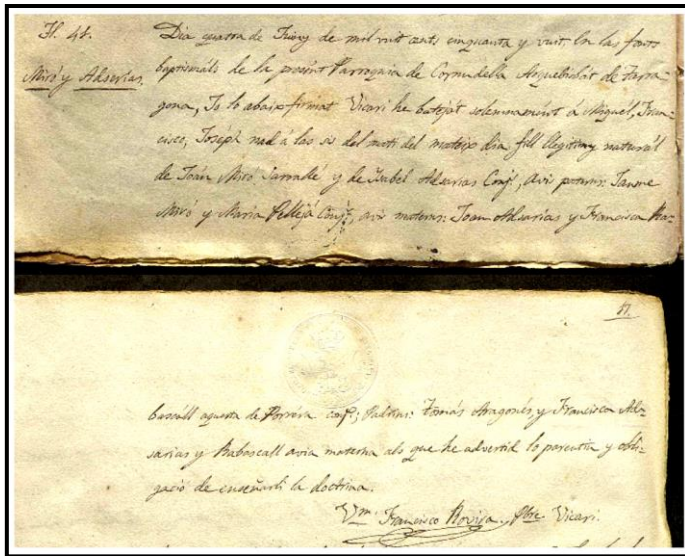 Fl. 48.
Miró y Adserias.
Dia quatra de Juny de mil vuit cents cinquanta y vuit. En las fonts
baptismáls de la presént Parroquia de Cornudella Arquebisbát de Tarra-
gona, Jo lo abaix firmat Vicari he bateját solemnemént á Miquel, Fran-
cisco, Joseph nad á las sis del matí del mateix dia fill llegitim y naturál
de Joán Miró, y de Isabel Adsarias Conj.s, avis paterns: Jaume
Miró y Maria Pellejá Conj.s, avis materns: Joan Adsarias y Francisca Ra-
47.
bascáll aquesta de Porrera conj.s; Padrins: Tomás Aragonés, y Francisca Ad-
sarias y Rabascall avia materna als que he advertid lo parentiu y obli-
gació de enseñarli la doctrina.
Francisco Rovira, Pbre. Vicari.